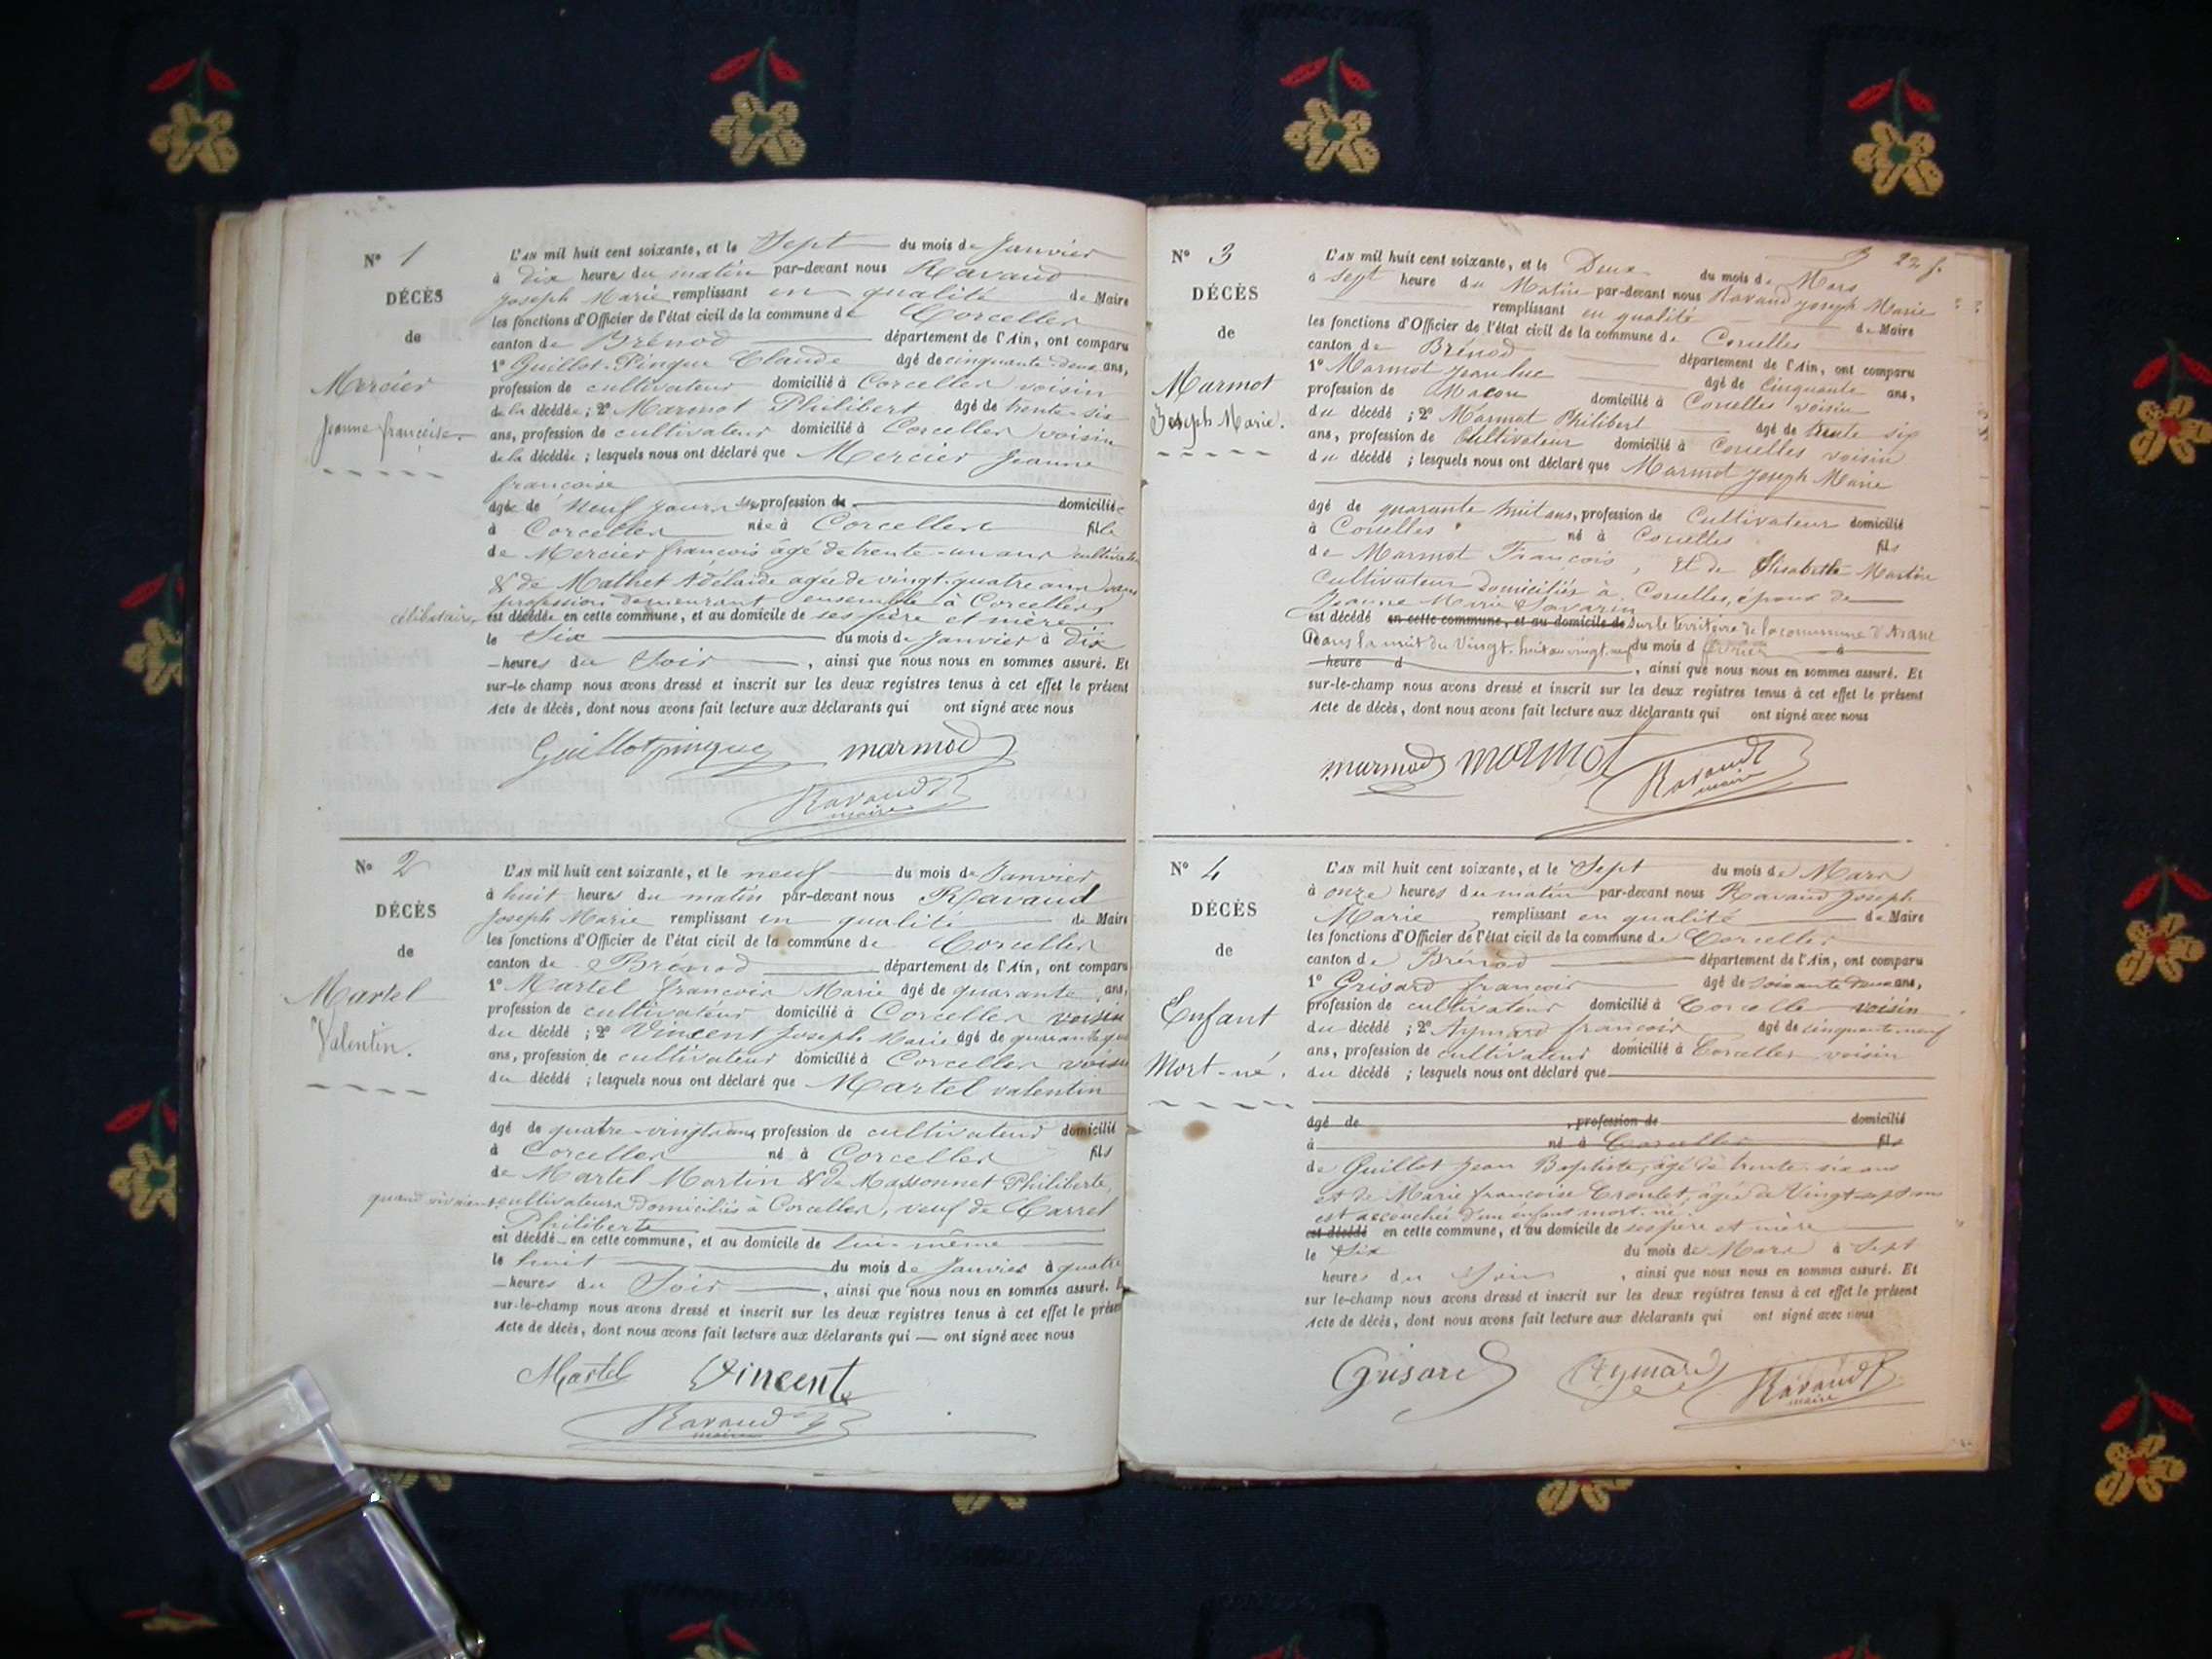 N° 1
DÉCÈS
de
Mercier
Jeanne françoise.
L'AN mil huit cent soixante, et le Sept du mois de Janvier
à dix heures du matin par-devant nous Ravaud
Joseph Marie remplissant en qualité de Maire
les fonctions d'Officier de l'état civil de la commune de Corcelles
canton de Brénod département de l'Ain, ont comparu
1° Guillot-Pingue Claude âgé de cinquante-deux ans,
profession de cultivateur domicilié à Corcelles voisin
de la décédée; 2° Marmot Philibert âgé de trente-six
ans, profession de cultivateur domicilié à Corcelles voisin
de la décédée; lesquels nous ont déclaré que Mercier Jeanne
françoise
âgée de neuf jours profession de domiciliée
à Corcelles née à Corcelles fille
de Mercier françois âgé de trente-un ans cultivateur
& de Mathet Adélaïde agée de vingt-quatre ans sans
profession demeurant ensemble à Corcelles
célibataire, est décédée en cette commune, et au domicile de ses père et mère
le Six du mois de Janvier à dix
heures du Soir, ainsi que nous nous en sommes assuré. Et
sur-le-champ nous avons dressé et inscrit sur les deux registres tenus à cet effet le présent
Acte de décès, dont nous avons fait lecture aux déclarants qui ont signé avec nous
Guillotpingue marmod
Ravaud
maire
N° 2
DÉCÈS
de
Martel
Valentin.
L'AN mil huit cent soixante, et le neuf du mois de Janvier
à huit heures du matin par-devant nous Ravaud
Joseph Marie remplissant en qualité de Maire
les fonctions d'Officier de l'état civil de la commune de Corcelles
canton de Brénod département de l'Ain, ont comparu
1° Martel françois Marie âgé de quarante ans,
profession de cultivateur domicilié à Corcelles voisin
du décédé; 2° Vincent Joseph Marie âgé de
ans, profession de cultivateur domicilié à Corcelles voisin
du décédé; lesquels nous ont déclaré que Martel valentin
âgé de quatre-vingts ans profession de cultivateur domicilié
à Corcelles né à Corcelles fils
de Martel Martin & de Massonnet Philiberte,
quand vivaient cultivateurs domiciliés à Corcelles, veuf de Carrel
Philiberte
est décédé en cette commune, et au domicile de lui-même
le huit du mois de Janvier à quatre
heures du Soir, ainsi que nous nous en sommes assuré. Et
sur-le-champ nous avons dressé et inscrit sur les deux registres tenus à cet effet le présent
Acte de décès, dont nous avons fait lecture aux déclarants qui — ont signé avec nous
Martel Vincent
Ravaud
maire
3
N° 3
DÉCÈS
de
Marmot
Joseph Marie.
L'AN mil huit cent soixante, et le Deux du mois de Mars
à sept heure du Matin par-devant nous Ravaud Joseph Marie
remplissant en qualité de Maire
les fonctions d'Officier de l'état civil de la commune de Corcelles
canton de Brénod département de l'Ain, ont comparu
1° Marmot Jean luc âgé de Cinquante ans,
profession de Maçon domicilié à Corcelles voisin
du décédé; 2° Marmot Philibert âgé de trente six
ans, profession de Cultivateur domicilié à Corcelles voisin
du décédé; lesquels nous ont déclaré que Marmot Joseph Marie
âgé de quarante huit ans, profession de Cultivateur domicilié
à Corcelles né à Corcelles fils
de Marmot François, Et de Elisabeth Martin
Cultivateur domiciliés à Corcelles, époux de
Jeanne Marie Savarin
est décédé en cette commune, et au domicile de sur le territoire de la commune d'Aranc
dans la nuit du Vingt-huit au vingt-neuf du mois d février à
heure d, ainsi que nous nous en sommes assuré. Et
sur-le-champ nous avons dressé et inscrit sur les deux registres tenus à cet effet le présent
Acte de décès, dont nous avons fait lecture aux déclarants qui ont signé avec nous
marmod marmot Ravaud
maire
N° 4
DÉCÈS
de
Enfant
Mort-né.
L'AN mil huit cent soixante, et le Sept du mois de Mars
à onze heures du matin par-devant nous Ravaud Joseph
Marie remplissant en qualité de Maire
les fonctions d'Officier de l'état civil de la commune de Corcelles
canton de Brénod département de l'Ain, ont comparu
1° Grisard françois âgé de soixante deux ans,
profession de cultivateur domicilié à Corcelle voisin
du décédé; 2° Aymard françois âgé de cinquante-neuf
ans, profession de cultivateur domicilié à Corcelles voisin
du décédé; lesquels nous ont déclaré que
âgé de, profession de domicilié
à né à Corcelles fils
de Guillot Jean Baptiste, âgé de trente-six ans
et de Marie françoise âgée de Vingt-sept ans
est accouchée d'un enfant mort-né.
est décédé en cette commune, et au domicile de ses père et mère
le Six du mois de Mars à Sept
heures du Soir, ainsi que nous nous en sommes assuré. Et
sur le-champ nous avons dressé et inscrit sur les deux registres tenus à cet effet le présent
Acte de décès, dont nous avons fait lecture aux déclarants qui ont signé avec nous
Grisard Aymard Ravaud
maire